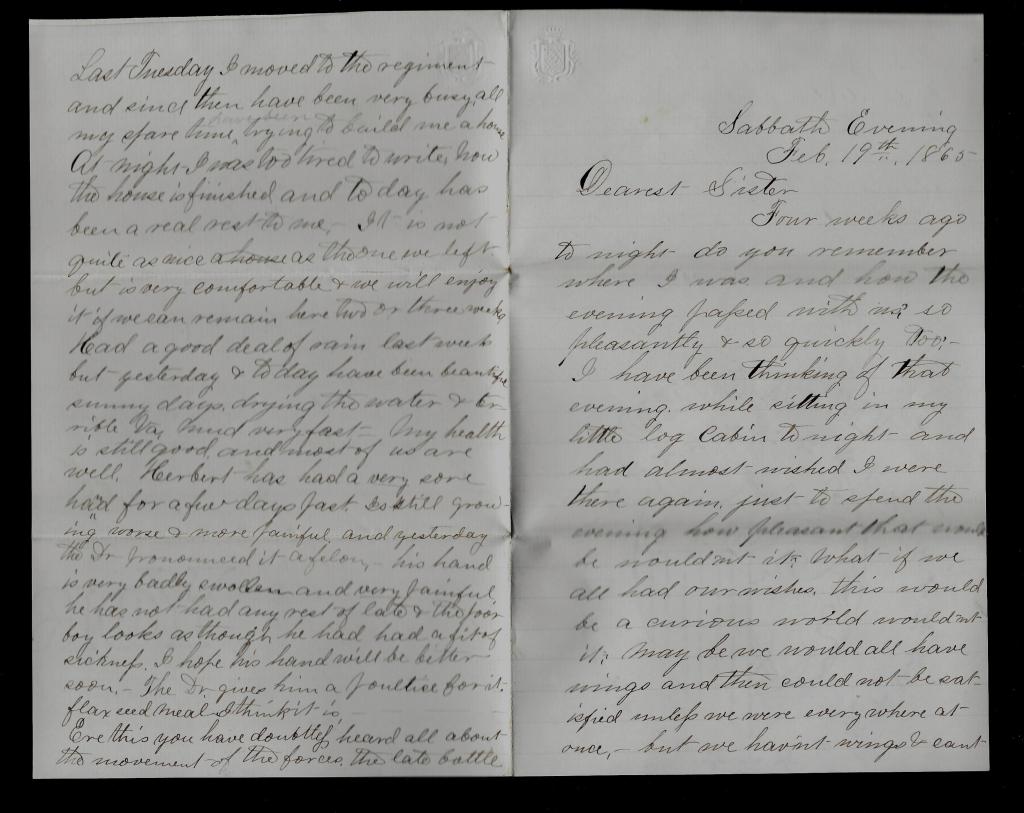 Sabbath Evening
Feb. 19th, 1865
Dearest Sister
Four weeks ago
to night do you remember
where I was and how the
evening passed with us? so
pleasantly & so quickly too;-
I have been thinking of that
evening. while sitting in my
little log cabin to night and
had almost wished I were
there again, just to spend the
evening how pleasant that would
be wouldnt it? What if we
all had our wishes, this would
be a curious world wouldnt
it? May be we would all have
wings and then could not be sat-
isfied unless we were every where at
once,- but we havnt wings & cant
Last Tuesday I moved to the regiment
and since then have been very busy, all
my spare time, have been trying to build me a house
At night I was too tired to write, now
the house is finished and to day has
been a real rest to me,- It is not
quite as nice a house as the one we left
but is very comfortable & we will enjoy
it if we can remain here two or three weeks
Had a good deal of rain last week
but yesterday & to day have been beautiful
sunny days, drying the water & ter-
rible Va, mud very fast- My health
is still good, and most of us are
well. Herbert has had a very sore
hand for a few days past Is still grow-
ing worse & more painful and yesterday
the Dr pronounced it a felon,- his hand
is very badly swollen and very painful
he has not had any rest of late & the poor
boy looks as though he had had a fit of
sickness. I hope his hand will be better
soon,- The Dr. gives him a poultice for it.
flax seed meal I think it is,
Ere this you have doubtless heard all about
the movement of the forces, the late battle